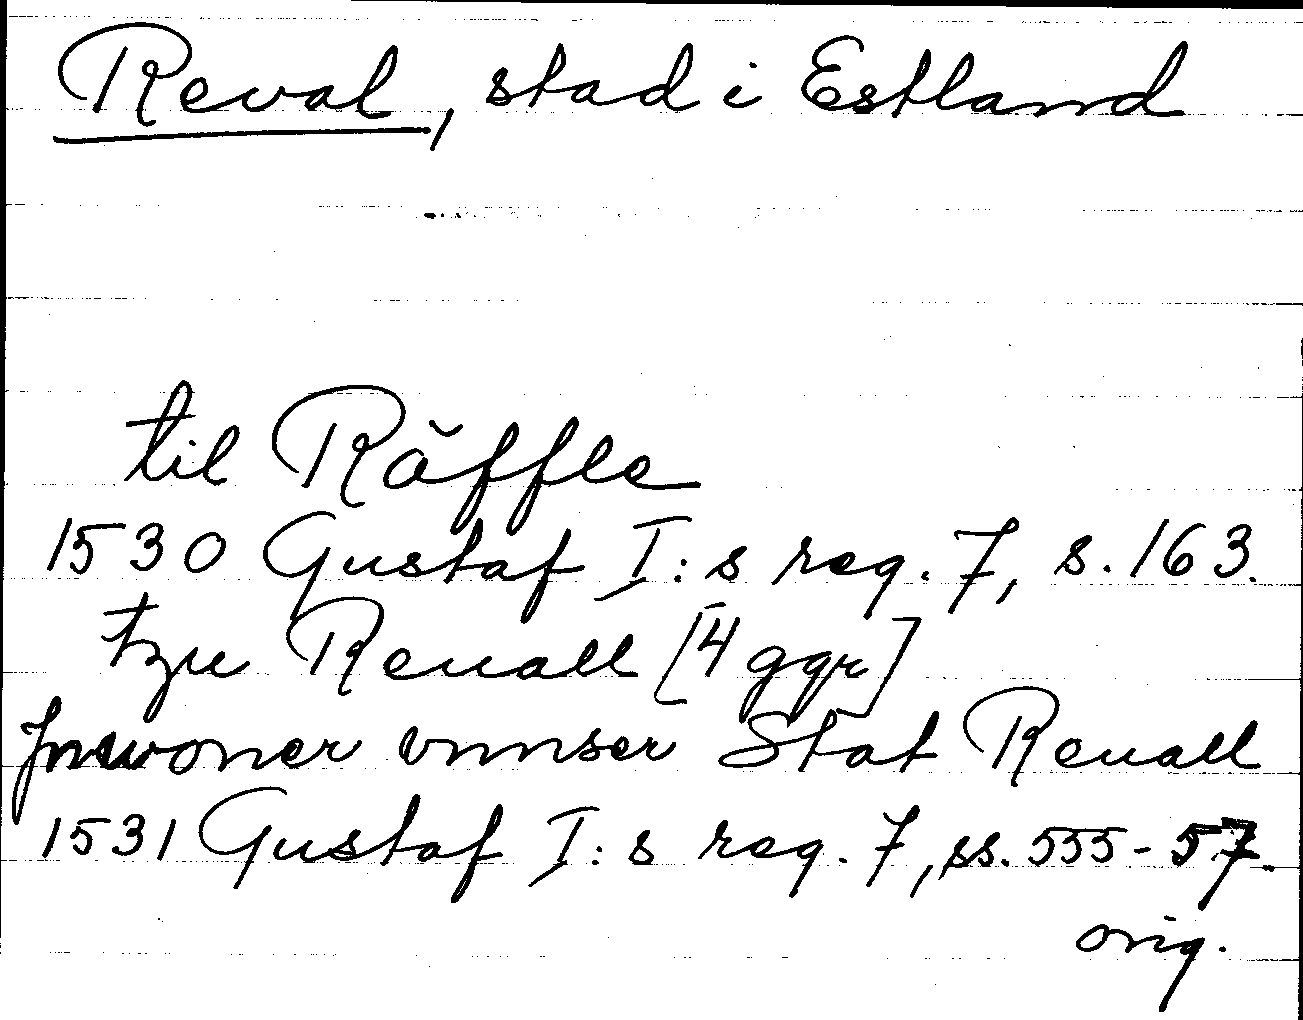 Reval, stad i Estland
til Räffle
1530 Gustaf I:s reg. 7, s. 163.
tzu Reuall [4 ggr]
Jnwoner vnnser Stat Reuall
1531 Gustaf I:s reg. 7, ss. 555-57.
orig.